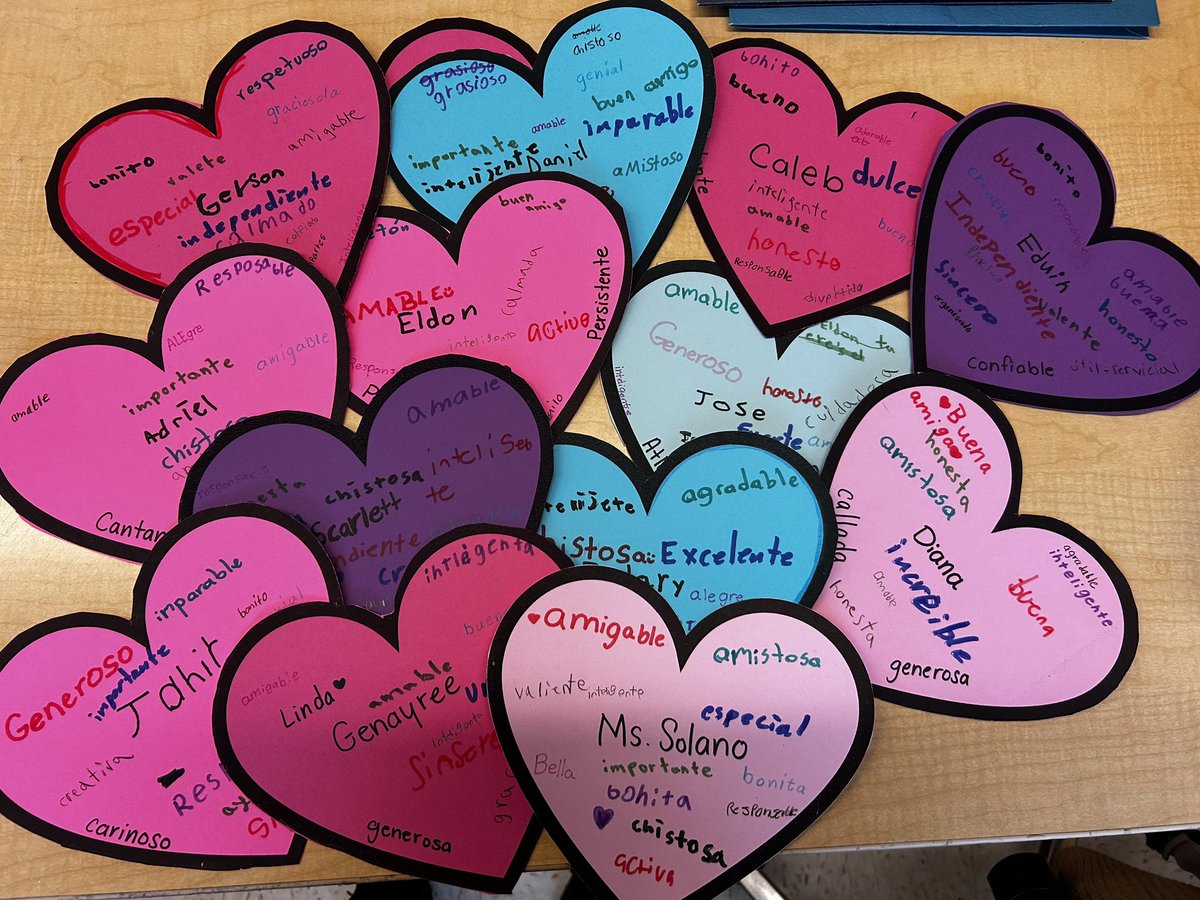 respetuoso
graciosola
amigable
bonito
valete
Gerson
especial
independiente
calmado
grasioso
grasioso
amable
chistoso
genial
buen amigo
imparable
amable
importante
intelijente
Daniel
aMistoso
bonito
bueno
adorable
Caleb
dulce
inteligente
amable
bueno
honesto
Responsable
divertida
bonito
bueno
creativo
Independiente
Eduin
valiente
amable
buema
honesto
Sincero
organisado
confiable
util-servicial
buen
amigo
AMABLE
Eldon
calmada
Persistente
activo
inteligento
amable
Generoso
honesto
Jose
cuidadosa
inteligente
Fuerte
Eldon tu
Resposable
AlEgre
amable
importante
amigable
Adriel
chistoso
Cantan
amable
chistosa
inteliSeb
te
Scarlett
ndiente
tenijete
agradable
istosa
Excelente
alegre
Buena
amiga
honesta
amistosa
callada
Diana
increible
amable
honesta
buena
agradable
inteligente
generosa
imparable
bonito
Generoso
importante
Jahir
creativa
Res
carinoso
intligenta
amigable
Linda
amable
Genayree
inteligente
Sinsore
generosa
amigable
amistosa
valiente
inteligente
especial
Ms. Solano
Bella
importante
bonita
bohita
Responsable
chistosa
activa